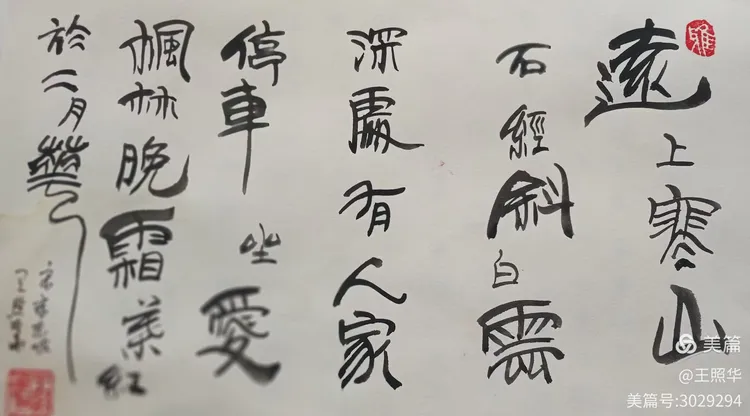 遠上寒山
石經斜白雲
深處有人家
停車坐愛
楓林晚霜葉紅
於二月華
美篇
@王照华
美篇号:3029294